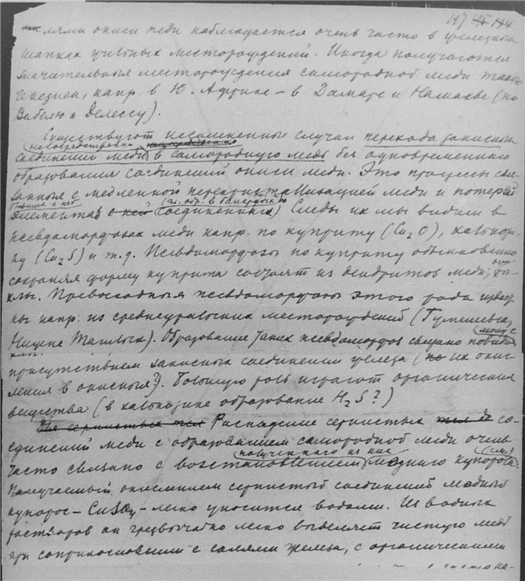 147 194
лями окиси меди наблюдается очень часто в железных
шапках рудных месторождений. Иногда получаются
значительные месторождения самородной меди такого
генезиса, напр. в Ю. Африке – в Дамаре и Намаква (по
Делессу).
Существуют несомненные случаи перехода закисных
непосредственно
соединений меди в самородную медь без одновременного
образования соединений окиси меди. Это процессы свя-
занные с медленной перекристаллизацией меди и потерей
элемента с ней соединенных) Следы их мы видим в
псевдоморфозах меди напр. по куприту (Cu₂O), халькози-
ну (Cu₂S) и т.д. Псевдоморфозы по куприту обыкновенно
сохраняя форму куприта состоят из дендритов меди,
Превосходные псевдоморфозы этого рода извест-
ны напр. из среднеуральских месторождений (Гумешевск,
Нижне Тагильск). Образование таких псевдоморфоз связано
присутствием закисных соединений железа (по их окис-
ления в окисные). Большую роль играют органические
вещества (в халькозине образование H₂S?)
Распадение сернистых со-
единений меди с образованием самородной меди очень
полученного из них
часто связано с восстановлением медного купороса
Получаемый окислением сернистых соединений медный
купорос – CuSO₄ – легко уносится водами. Из водных
растворов он чрезвычайно легко выделяет чистую медь
при соприкосновении с солями железа, с органическими